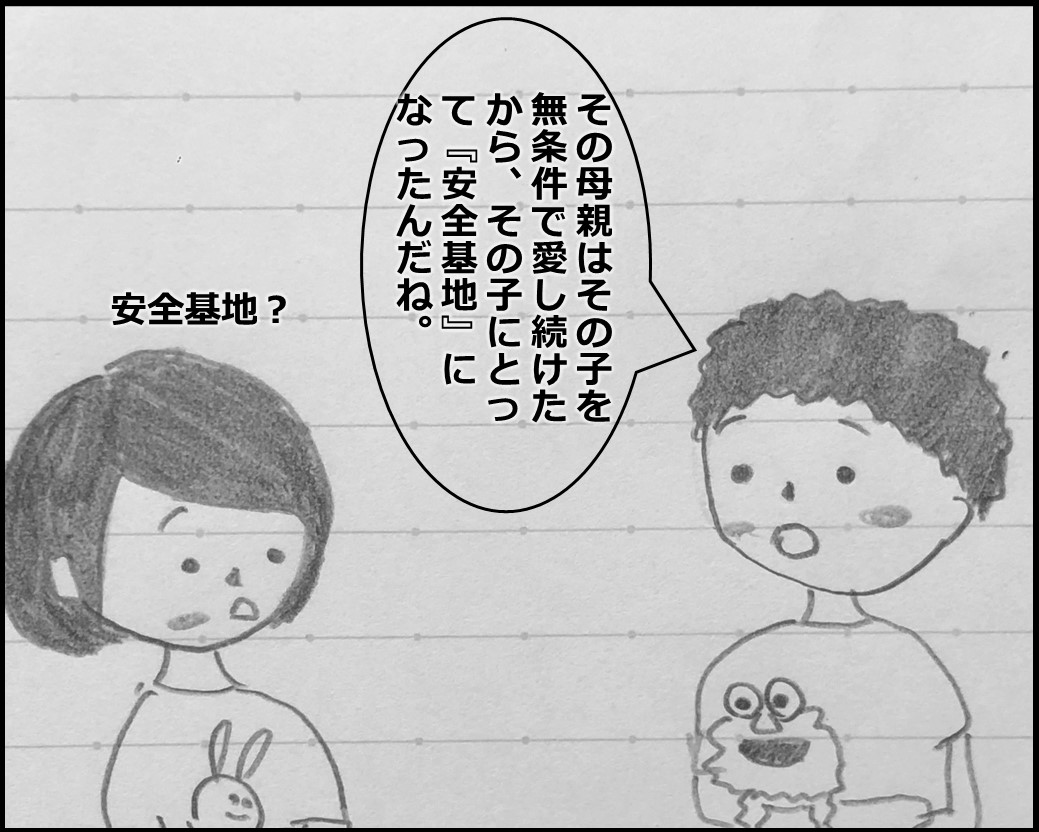 その母親はその子を
無条件で愛し続けた
から、その子にとっ
て『安全基地』に
なったんだね。
安全基地？